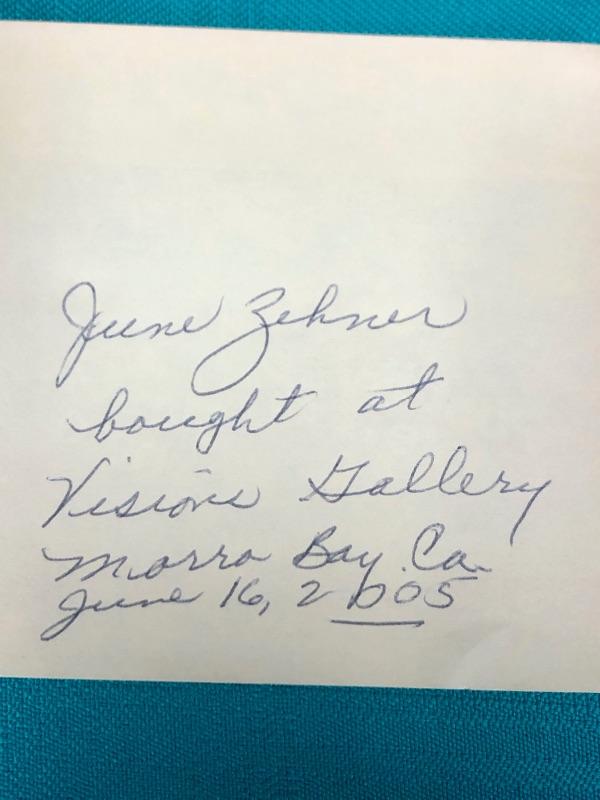 June Zehner
bought at
Visions Gallery
Morro Bay. Ca.
June 16, 2005